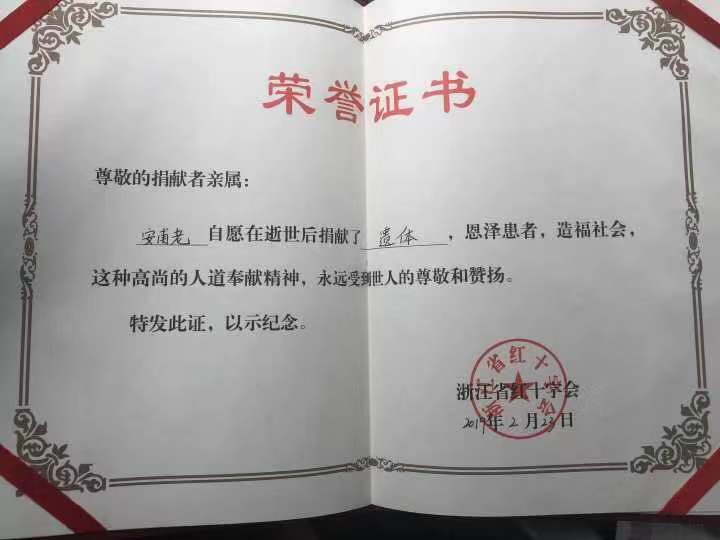 荣誉证书
尊敬的捐献者亲属：
安甫老 自愿在逝世后捐献了 遗体 ，恩泽患者，造福社会，
这种高尚的人道奉献精神，永远受到世人的尊敬和赞扬。
特发此证，以示纪念。
浙江省红十字会
浙江省红十字会
2019年2月23日